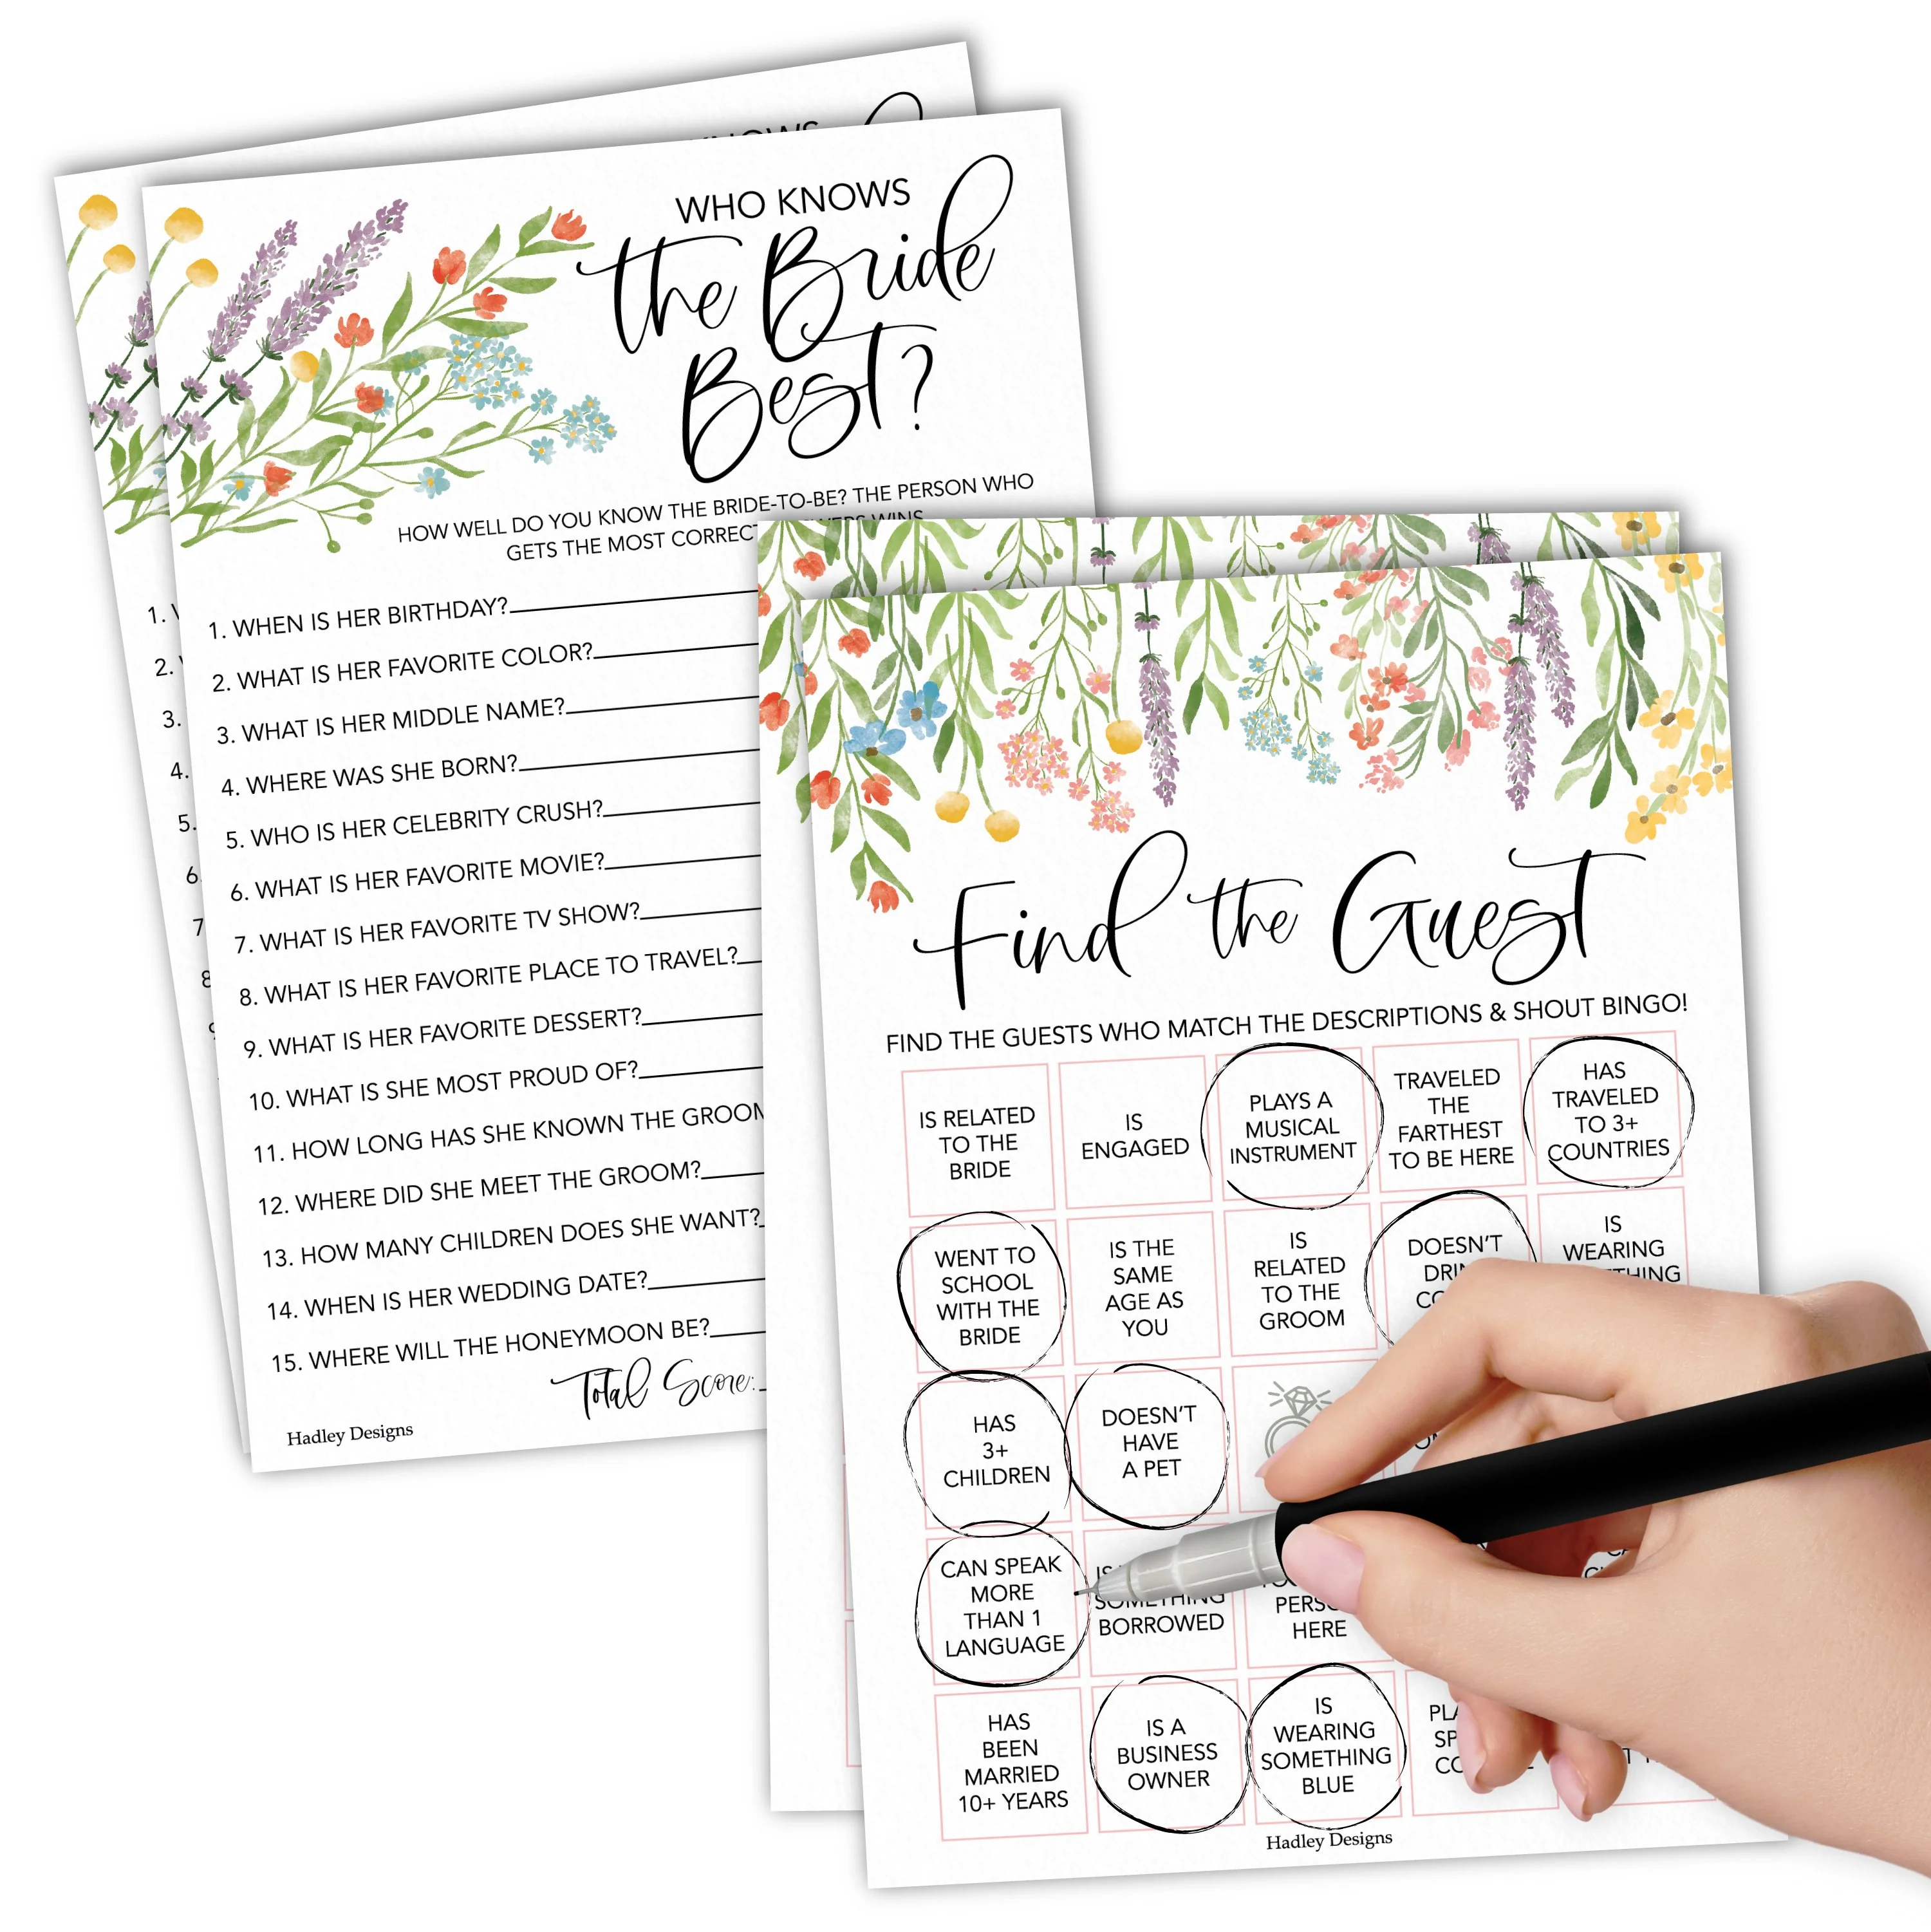 KNOWS
WHO KNOWS
the Bride
Best?
HOW WELL DO YOU KNOW THE BRIDE-TO-BE? THE PERSON WHO
GETS THE MOST CORRECT WINS
1. WHEN IS HER BIRTHDAY?
2. WHAT IS HER FAVORITE COLOR?
3. WHAT IS HER MIDDLE NAME?
4. WHERE WAS SHE BORN?
5. WHO IS HER CELEBRITY CRUSH?
6. WHAT IS HER FAVORITE MOVIE?
7. WHAT IS HER FAVORITE TV SHOW?
8. WHAT IS HER FAVORITE PLACE TO TRAVEL?
9. WHAT IS HER FAVORITE DESSERT?
10. WHAT IS SHE MOST PROUD OF?
11. HOW LONG HAS SHE KNOWN THE GROOM
12. WHERE DID SHE MEET THE GROOM?
13. HOW MANY CHILDREN DOES SHE WANT?
14. WHEN IS HER WEDDING DATE?
15. WHERE WILL THE HONEYMOON BE?
Total Score:
Hadley Designs
1.
2.
3.
4.
5.
6.
7
8
9
Find the Guest
FIND THE GUESTS WHO MATCH THE DESCRIPTIONS & SHOUT BINGO!
IS RELATED
TO THE
BRIDE
IS
ENGAGED
PLAYS A
MUSICAL
INSTRUMENT
TRAVELED
THE
FARTHEST
TO BE HERE
HAS
TRAVELED
TO 3+
COUNTRIES
WENT TO
SCHOOL
WITH THE
BRIDE
IS THE
SAME
AGE AS
YOU
IS
RELATED
TO THE
GROOM
DOESN'T
IS
WEARING
HAS
3+
CHILDREN
DOESN'T
HAVE
A PET
CAN SPEAK
MORE
THAN 1
LANGUAGE
SOMETHING
BORROWED
HERE
HAS
BEEN
MARRIED
10+ YEARS
IS A
BUSINESS
OWNER
IS
WEARING
SOMETHING
BLUE
Hadley Designs